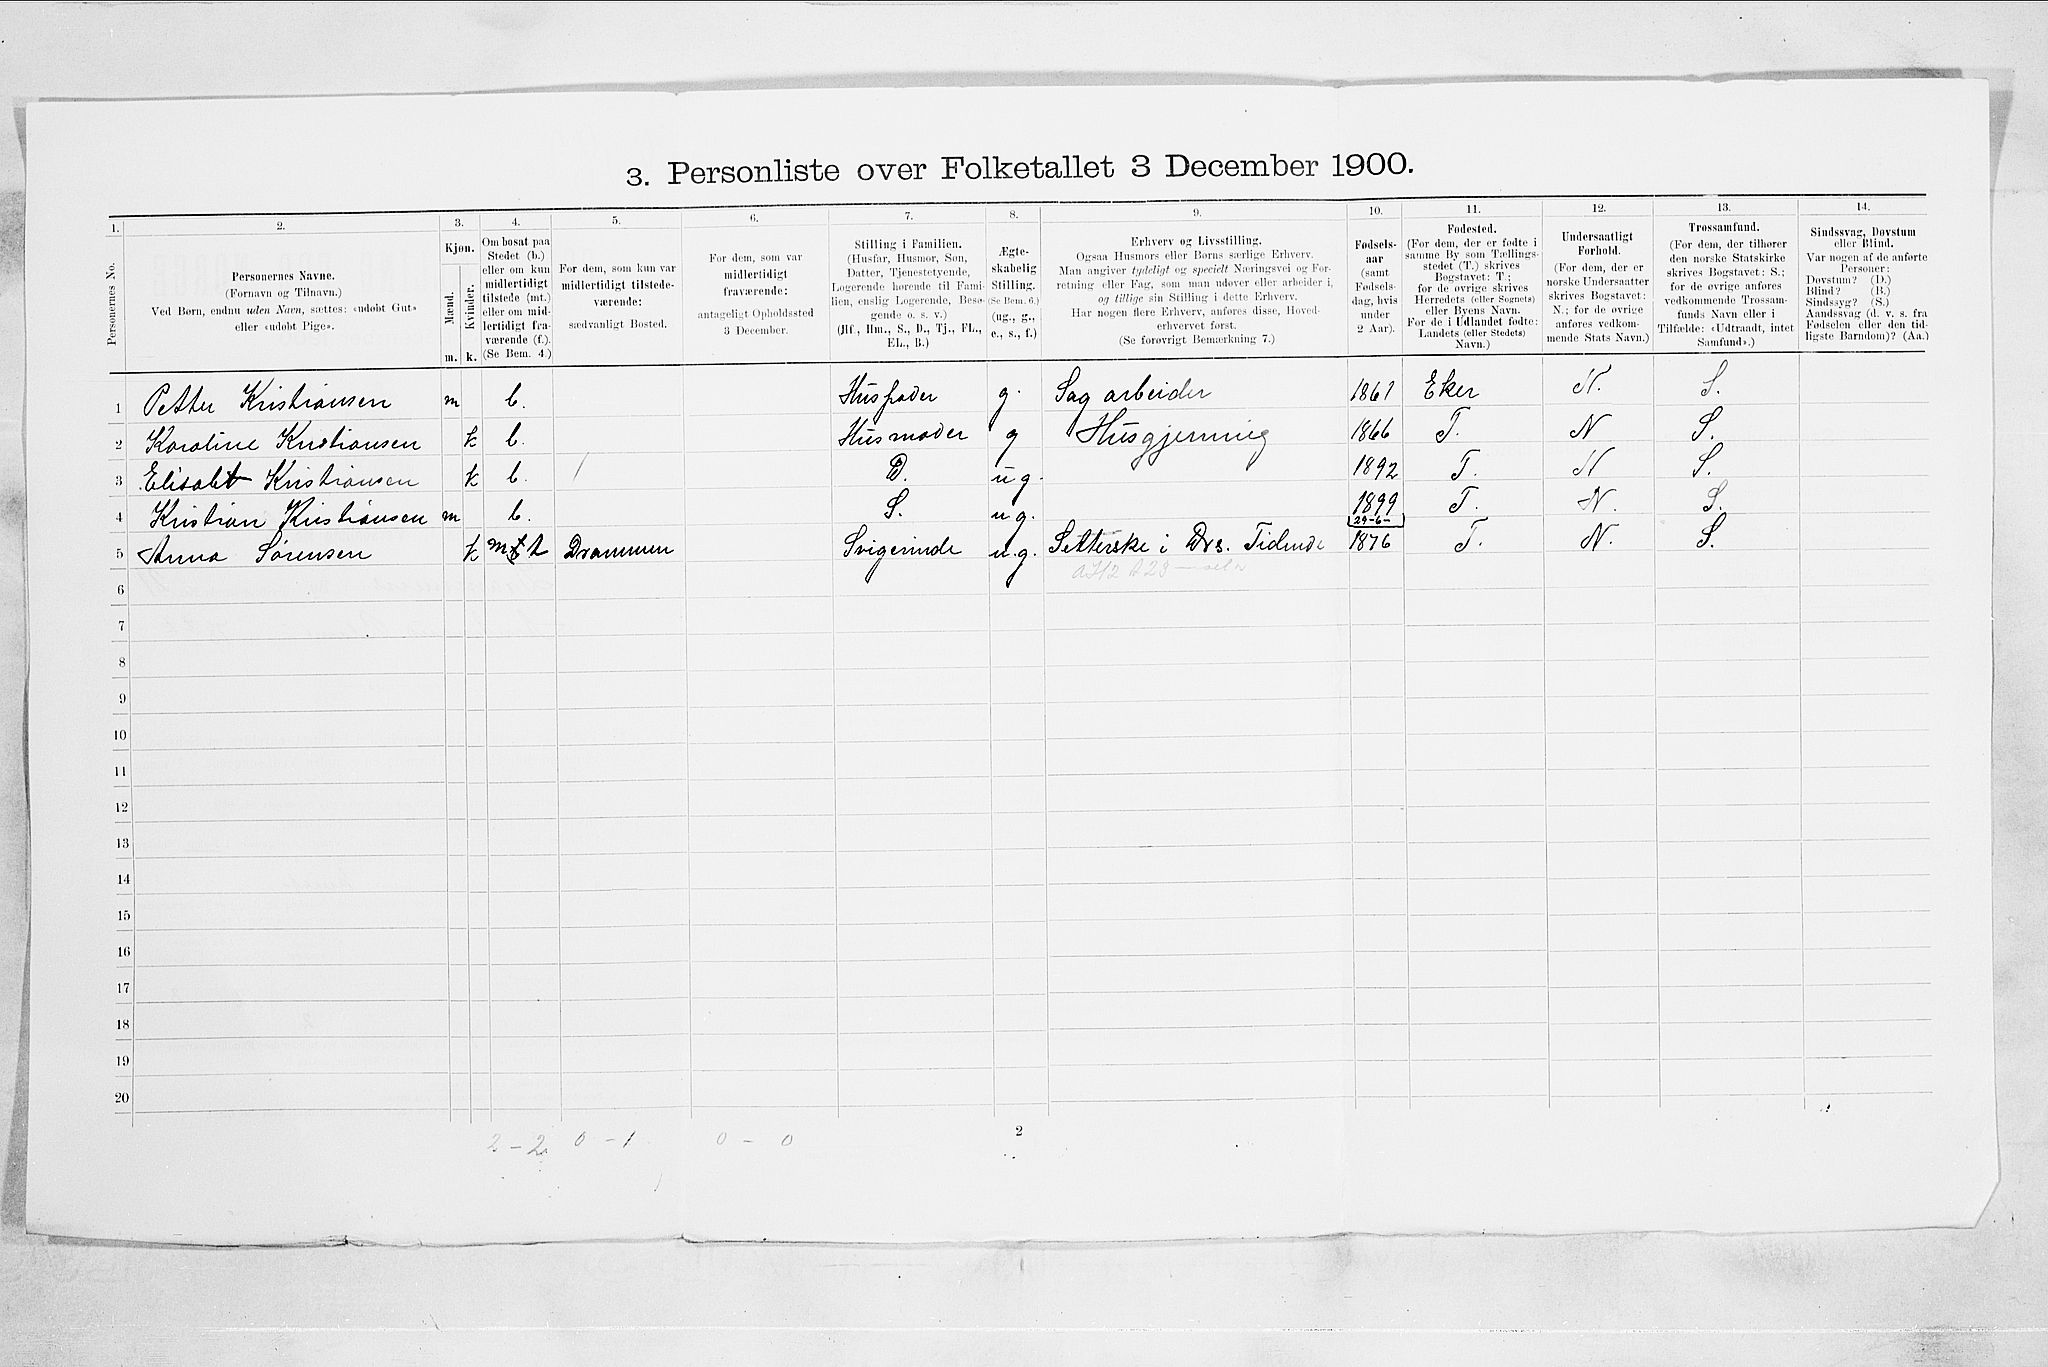 3. Personliste over Folketallet 3 December 1900.
1. 2. 3. 4. 5. 6. 7. 8. 9. 10. 11. 12. 13. 14.
Personernes No.
Personernes Navne.
(Fornavn og Tilnavn.)
Ved Børn, endnu uden Navn, sættes: «udøbt Gut»
eller «udøbt Pige».
Kjøn.
Mænd.
Kvinder.
m. k.
Om bosat paa
Stedet (b.)
eller om kun
midlertidigt
tilstede (mt.)
eller om mid-
lertidigt fra-
værende (f.).
(Se Bem. 4.)
For dem, som kun var
midlertidigt tilstede-
værende:
sædvanligt Bosted.
For dem, som var
midlertidigt
fraværende:
antageligt Opholdssted
3 December.
Stilling i Familien.
(Husfar, Husmor, Søn,
Datter, Tjenestetyende,
Logerende hørende til Fami-
lien, enslig Logerende, Besø-
gende o. s. v.)
(Hf., Hm., S., D., Tj., FL.,
EL., B.)
Ægte-
skabelig
Stilling.
(Se Bem. 6.)
(ug., g.,
e., s., f.)
Erhverv og Livsstilling.
Ogsaa Husmors eller Børns særlige Erhverv.
Man angiver tydeligt og specielt Næringsvei og For-
retning eller Fag, som man udøver eller arbeider i,
og tillige sin Stilling i dette Erhverv.
Har nogen flere Erhverv, anføres disse, Hoved-
erhvervet først.
(Se forøvrigt Bemærkning 7.)
Fødsels-
aar
(samt
Fødsels-
dag, hvis
under
2 Aar).
Fødested.
(For dem, der er fødte i
samme By som Tællings-
stedet (T.) skrives
Bogstavet: T.;
for de øvrige skrives
Herredets (eller Sognets)
eller Byens Navn.
For de i Udlandet fødte:
Landets (eller Stedets)
Navn.)
Undersaatligt
Forhold.
(For dem, der er
norske Undersaatter
skrives Bogstavet:
N.; for de øvrige
anføres vedkom-
mende Stats Navn.)
Trossamfund.
(For dem, der tilhører
den norske Statskirke
skrives Bogstavet: S.;
for de øvrige anføres
vedkommende Trossam-
funds Navn eller i
Tilfælde: «Udtraadt, intet
Samfund».)
Sindssvag, Døvstum
eller Blind.
Var nogen af de anførte
Personer:
Døvstum? (D.)
Blind? (B.)
Sindssyg? (S.)
Aandssvag (d. v. s. fra
Fødselen eller den tid-
ligste Barndom)? (Aa.)
1 Petter Kristiansen m b. Husfader g. Sag arbeider 1861 Eker N. S.
2 Karoline Kristiansen k b. Husmoder g Husgjerning 1866 T. N S.
3 Elisabet Kristiansen k b. D. ug. 1892 T. N S.
4 Kristian Kristiansen m b. S. ug. 1899 T. N. S.
29-6-
5 Anna Sørensen k mt Drammen Svigerinde u.g. Setterske i Drs. Tidende 1876 T. N. S.
6
7
8
9
10
11
12
13
14
15
16
17
18
19
20
2 - 2 0 - 1 0 - 0 2